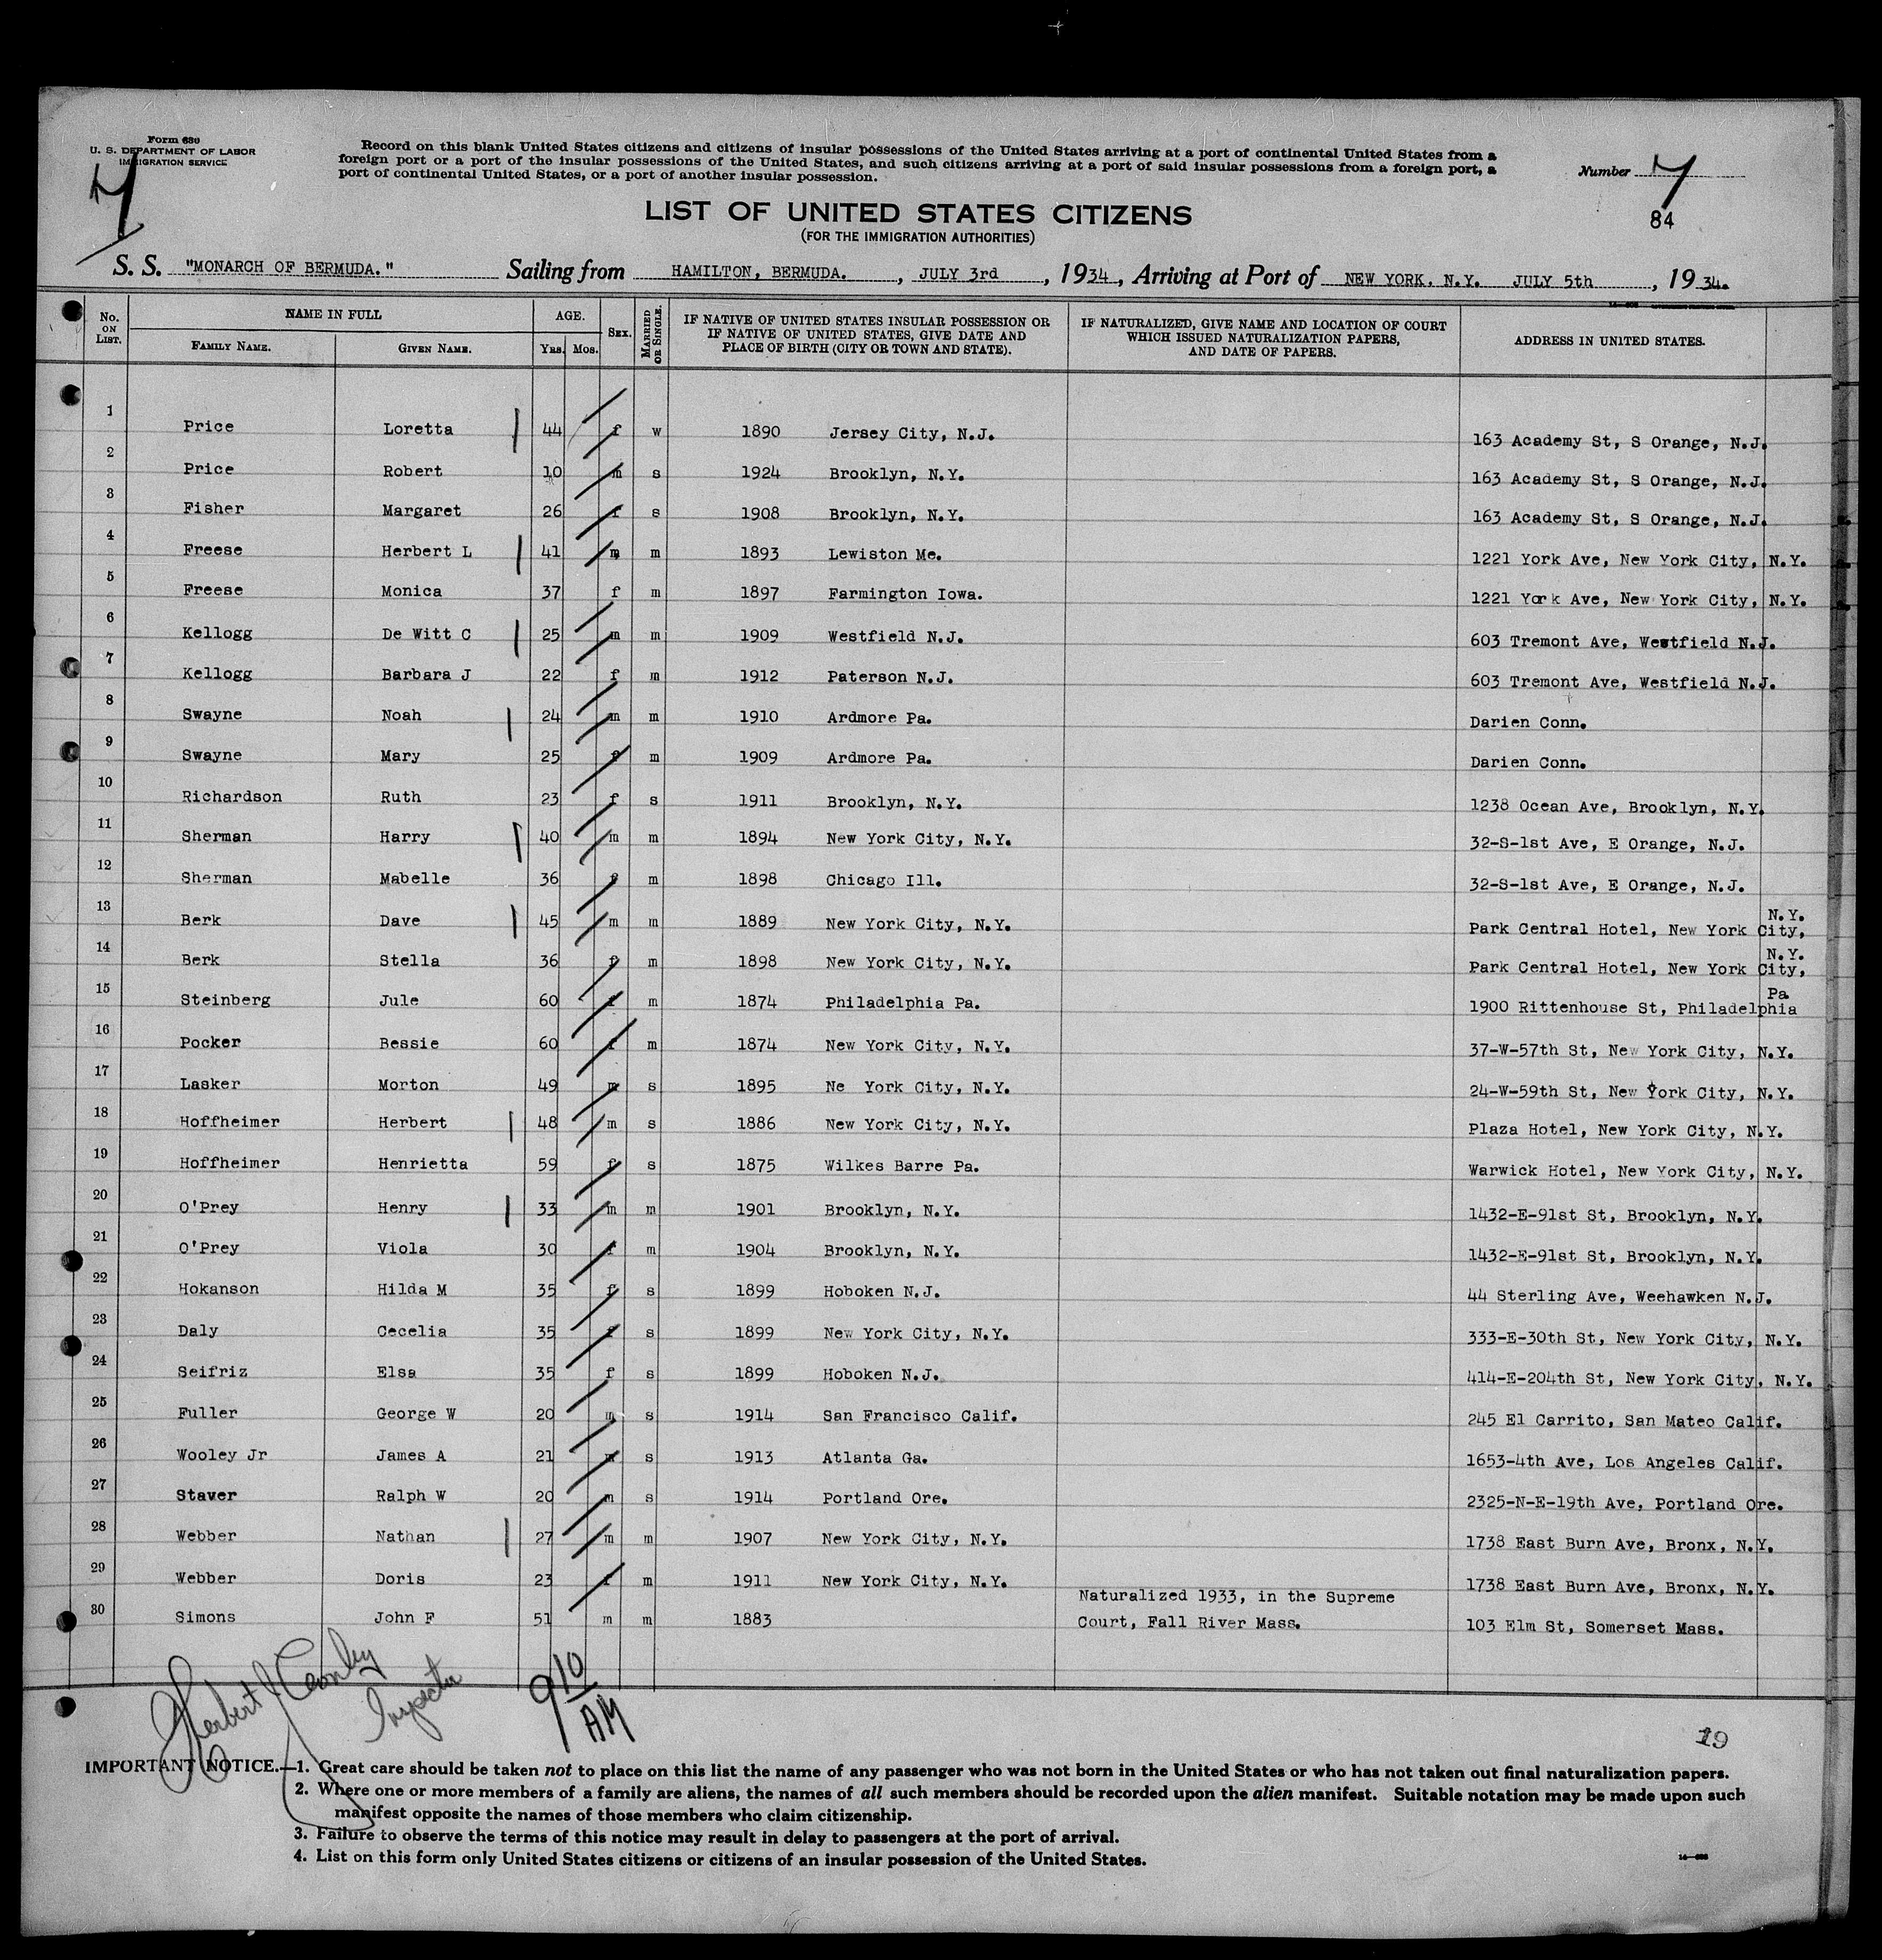 Form 630
U. S. DEPARTMENT OF LABOR
IMMIGRATION SERVICE
7
Record on this blank United States citizens and citizens of insular possessions of the United States arriving at a port of continental United States from a
foreign port or a port of the insular possessions of the United States, and such citizens arriving at a port of said insular possessions from a foreign port, a
port of continental United States, or a port of another insular possession.
Number 7
84
LIST OF UNITED STATES CITIZENS
(FOR THE IMMIGRATION AUTHORITIES)
S. S. "MONARCH OF BERMUDA." Sailing from HAMILTON, BERMUDA. , JULY 3rd , 1934, Arriving at Port of NEW YORK, N.Y. JULY 5th , 1934.
No. ON LIST. NAME IN FULL FAMILY NAME. GIVEN NAME. AGE. YRS. MOS. SEX. MARRIED OR SINGLE. IF NATIVE OF UNITED STATES INSULAR POSSESSION OR IF NATIVE OF UNITED STATES, GIVE DATE AND PLACE OF BIRTH (CITY OR TOWN AND STATE). IF NATURALIZED, GIVE NAME AND LOCATION OF COURT WHICH ISSUED NATURALIZATION PAPERS, AND DATE OF PAPERS. ADDRESS IN UNITED STATES.
1 Price Loretta 44 f w 1890 Jersey City, N.J. 163 Academy St, S Orange, N.J.
2 Price Robert 10 m s 1924 Brooklyn, N.Y. 163 Academy St, S Orange, N.J.
3 Fisher Margaret 26 f s 1908 Brooklyn, N.Y. 163 Academy St, S Orange, N.J.
4 Freese Herbert L 41 m m 1893 Lewiston Me. 1221 York Ave, New York City, N.Y.
5 Freese Monica 37 f m 1897 Farmington Iowa. 1221 York Ave, New York City, N.Y.
6 Kellogg De Witt C 25 m m 1909 Westfield N.J. 603 Tremont Ave, Westfield N.J.
7 Kellogg Barbara J 22 f m 1912 Paterson N.J. 603 Tremont Ave, Westfield N.J.
8 Swayne Noah 24 m m 1910 Ardmore Pa. Darien Conn.
9 Swayne Mary 25 f m 1909 Ardmore Pa. Darien Conn.
10 Richardson Ruth 23 f s 1911 Brooklyn, N.Y. 1238 Ocean Ave, Brooklyn, N.Y.
11 Sherman Harry 40 m m 1894 New York City, N.Y. 32-S-1st Ave, E Orange, N.J.
12 Sherman Mabelle 36 f m 1898 Chicago Ill. 32-S-1st Ave, E Orange, N.J.
13 Berk Dave 45 m m 1889 New York City, N.Y. Park Central Hotel, New York City, N.Y.
14 Berk Stella 36 f m 1898 New York City, N.Y. Park Central Hotel, New York City, N.Y.
15 Steinberg Jule 60 f m 1874 Philadelphia Pa. 1900 Rittenhouse St, Philadelphia Pa
16 Pocker Bessie 60 f m 1874 New York City, N.Y. 37-W-57th St, New York City, N.Y.
17 Lasker Morton 49 m s 1895 Ne York City, N.Y. 24-W-59th St, New York City, N.Y.
18 Hoffheimer Herbert 48 m s 1886 New York City, N.Y. Plaza Hotel, New York City, N.Y.
19 Hoffheimer Henrietta 59 f s 1875 Wilkes Barre Pa. Warwick Hotel, New York City, N.Y.
20 O'Prey Henry 33 m m 1901 Brooklyn, N.Y. 1432-E-91st St, Brooklyn, N.Y.
21 O'Prey Viola 30 f m 1904 Brooklyn, N.Y. 1432-E-91st St, Brooklyn, N.Y.
22 Hokanson Hilda M 35 f s 1899 Hoboken N.J. 44 Sterling Ave, Weehawken N.J.
23 Daly Cecelia 35 f s 1899 New York City, N.Y. 333-E-30th St, New York City, N.Y.
24 Seifriz Elsa 35 f s 1899 Hoboken N.J. 414-E-204th St, New York City, N.Y.
25 Fuller George W 20 m s 1914 San Francisco Calif. 245 El Carrito, San Mateo Calif.
26 Wooley Jr James A 21 m s 1913 Atlanta Ga. 1653-4th Ave, Los Angeles Calif.
27 Staver Ralph W 20 m s 1914 Portland Ore. 2325-N-E-19th Ave, Portland Ore.
28 Webber Nathan 27 m m 1907 New York City, N.Y. 1738 East Burn Ave, Bronx, N.Y.
29 Webber Doris 23 f m 1911 New York City, N.Y. 1738 East Burn Ave, Bronx, N.Y.
30 Simons John F 51 m m 1883 Naturalized 1933, in the Supreme Court, Fall River Mass. 103 Elm St, Somerset Mass.
Herbert J
Inspector
9 10 AM
19
IMPORTANT NOTICE.—1. Great care should be taken not to place on this list the name of any passenger who was not born in the United States or who has not taken out final naturalization papers.
2. Where one or more members of a family are aliens, the names of all such members should be recorded upon the alien manifest. Suitable notation may be made upon such
manifest opposite the names of those members who claim citizenship.
3. Failure to observe the terms of this notice may result in delay to passengers at the port of arrival.
4. List on this form only United States citizens or citizens of an insular possession of the United States.